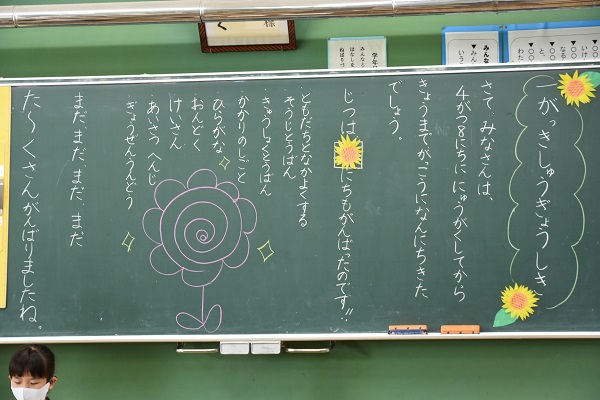 一がっきしゅうぎょうしき
さて、みなさんは、
4がつ8にちに にゅうがくしてから
きょうまでがっこうになんにちきた
でしょう。
じつは、
にちもがんばったのです!!
ともだちとなかよくする
そうじとうばん
きゅうしょくとうばん
かかりのしごと
ひらがな
おんどく
けいさん
あいさつ へんじ
ぎょうせんうんどう
まだ、まだ、まだ、まだ
た〜くさんがんばりましたね。